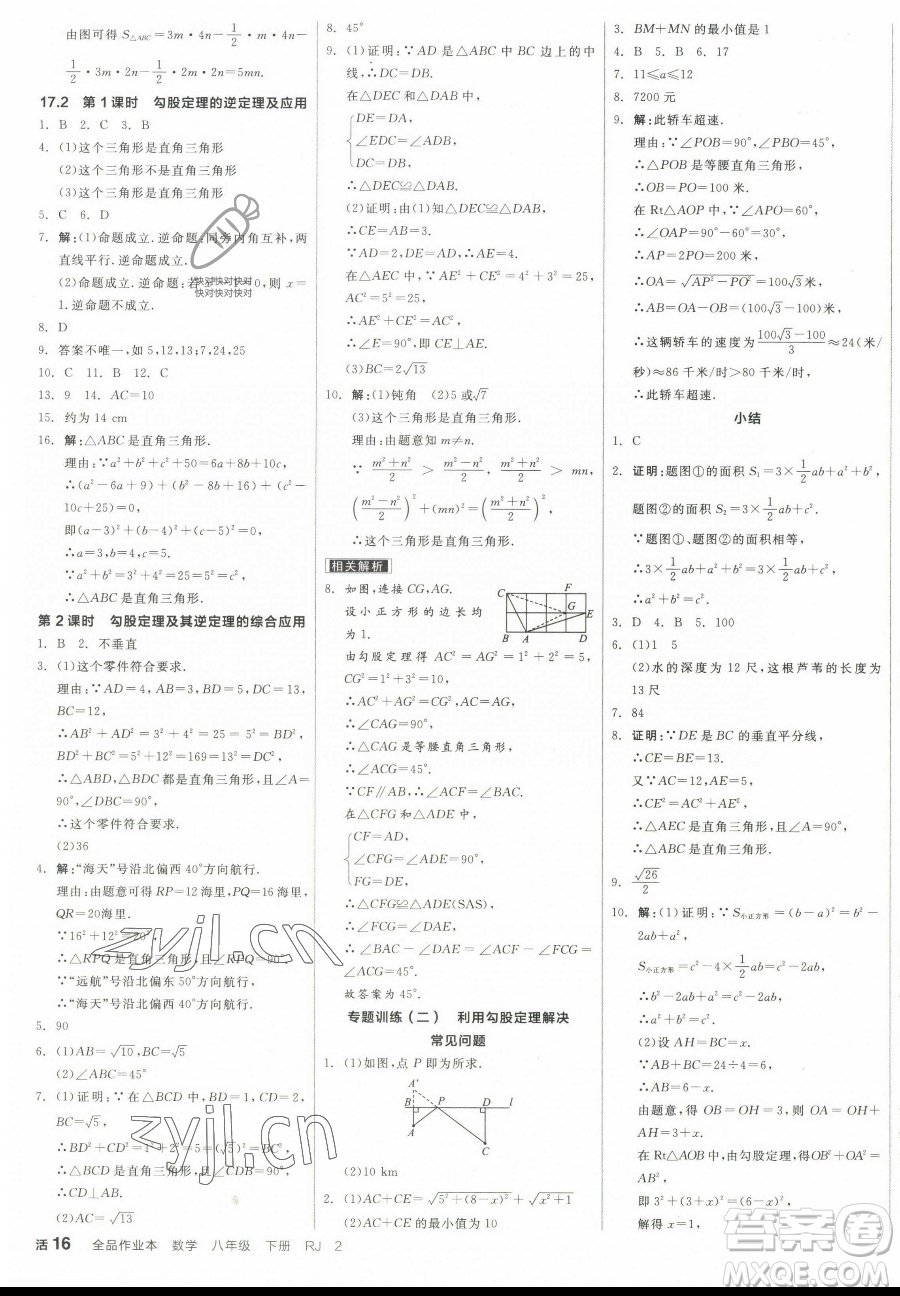 由图可得 S△ABC=3m·4n-1/2·m·4n-
1/2·3m·2n-1/2·2m·2n=5mn.
17.2 第1课时 勾股定理的逆定理及应用
1. B 2. C 3. B
4. (1)这个三角形是直角三角形
(2)这个三角形不是直角三角形
(3)这个三角形是直角三角形
5. C 6. D
7. 解:(1)命题成立.逆命题:同旁内角互补,两
直线平行.逆命题成立.
(2)命题成立.逆命题:若 0,则 x=
1.逆命题不成立.
快对快对快对
快对快对快对
8. D
9. 答案不唯一,如 5,12,13;7,24,25
10. C 11. B 12. C
13. 9 14. AC=10
15. 约为 14 cm
16. 解:△ABC 是直角三角形.
理由:∵a²+b²+c²+50=6a+8b+10c,
∴(a²-6a+9)+(b²-8b+16)+(c²-
10c+25)=0,
即(a-3)²+(b-4)²+(c-5)²=0,
∴a=3,b=4,c=5.
∵3²+4²=5²,
∴△ABC 是直角三角形.
第2课时 勾股定理及其逆定理的综合应用
1. B 2. 不垂直
3. (1)这个零件符合要求.
理由:∵AD=4,AB=3,BD=5,DC=13,
BC=12,
∴AB²+AD²=3²+4²=5²=BD²,
BD²+BC²=5²+12²=169=13²=DC²,
∴△ABD,△BDC 都是直角三角形,且∠A=
90°,∠DBC=90°,
∴这个零件符合要求.
(2)36
4. 解:“海天”号沿北偏西 40°方向航行.
理由:由题意可得 RP=12 海里,PQ=16 海里,
QR=20海里.
∵16²+12²=20²,
∴△RPQ 是直角三角形,且∠RPQ=90°.
∵“远航”号沿北偏东 50°方向航行,
∴“海天”号沿北偏西 40°方向航行.
5. 90
6. (1)AB=√10,BC=√5
(2)∠ABC=45°
7. (1)证明:∵在△BCD 中,BD=1,CD=2,
BC=√5,
∴BD²+CD²=1²+2²=5=(√5)²=BC²,
∴△BCD 是直角三角形,且∠CDB=90°,
∴CD⊥AB.
(2)AC=√13
8. 45°
9. (1)证明:∵AD 是△ABC 中 BC 边上的中
线,∴DC=DB.
在△DEC 和△DAB 中,
DE=DA,
∠EDC=∠ADB,
DC=DB,
∴△DEC≌△DAB.
(2)证明:由(1)知△DEC≌△DAB,
∴CE=AB=3.
∵AD=2,DA=DE,∴AE=4.
在△AEC 中,∵AE²+CE²=4²+3²=25,
AC²=5²=25,
∴AE²+CE²=AC²,
∴∠E=90°,即 CE⊥AE.
(3)BC=2√13
10. 解:(1)钝角 (2)5 或√7
(3)这个三角形是直角三角形.
理由:由题意知 m≠n.
∵ (m²+n²)/2 > (m²-n²)/2, (m²+n²)/2 > mn,
((m²-n²)/2)²+(mn)²=((m²+n²)/2)²,
∴这个三角形是直角三角形.
相关解析
8. 如图,连接 CG,AG.
设小正方形的边长均
为 1.
C F G E B A D
由勾股定理得 AC²=AG²=1²+2²=5,
CG²=1²+3²=10,
∴AC²+AG²=CG²,
∴∠CAG=90°,
∴△CAG 是等腰直角三角形,
∴∠ACG=45°.
∵CF∥AB,∴∠ACF=∠BAC.
在△CFG 和△ADE 中,
CF=AD,
∠CFG=∠ADE=90°,
FG=DE,
∴△CFG≌△ADE(SAS),
∴∠FCG=∠DAE,
∴∠BAC-∠DAE=∠ACF-∠FCG=
∠ACG=45°.
故答案为 45°.
专题训练(二) 利用勾股定理解决
常见问题
1. (1)如图,点 P 即为所求.
A′ B P D l A C
(2)10 km
2. (1)AC+CE=√(5²+(8-x)²)+√(x²+1)
(2)AC+CE 的最小值为 10
3. BM+MN 的最小值是 1
4. B 5. B 6. B
7. 11≤a≤12
8. 7200 元
9. 解:此轿车超速.
理由:∵∠POB=90°,∠PBO=45°,
∴△POB 是等腰直角三角形,
∴OB=PO=100 米.
在 Rt△AOP 中,∵∠APO=60°,
∴∠OAP=90°-60°=30°,
∴AP=2OP=200米,
∴OA=√(AP²-PO²)=100√3米,
∴AB=OA-OB=(100√3-100)米,
∴这辆轿车的速度为(100√3-100)/3≈24(米/
秒)≈86 千米/时>80 千米/时,
∴此轿车超速.
小结
1. C
2. 证明:题图①的面积 S₁=3×1/2ab+a²+b²,
题图②的面积 S₂=3×1/2ab+c².
∵题图①、题图②的面积相等,
∴3×1/2ab+a²+b²=3×1/2ab+c²,
∴a²+b²=c².
3. D 4. B 5. 100
6. (1)1 5
(2)水的深度为 12 尺,这根芦苇的长度为
13 尺
7. 84
8. 证明:∵DE 是 BC 的垂直平分线,
∴CE=BE=13.
又∵AC=12,AE=5,
∴CE²=AC²+AE²,
∴△AEC 是直角三角形,且∠A=90°,
∴△ABC 是直角三角形.
9. √26/2
10. 解:(1)证明:∵S小正方形=(b-a)²=b²-
2ab+a²,
S小正方形=c²-4×1/2ab=c²-2ab,
∴b²-2ab+a²=c²-2ab,
∴a²+b²=c².
(2)设 AH=BC=x,
∴AH+AB=24÷4=6,
∴AB=6-x.
由题意,得 OB=OH=3,则 OA=OH+
AH=3+x.
在 Rt△AOB 中,由勾股定理,得OB²+OA²=
AB²,
即 3²+(3+x)²=(6-x)²,
解得 x=1,
活 16 全品作业本 数学 八年级 下册 RJ 2
zyjl.cn
zyjl.cn
答案圈
MXQE.COM